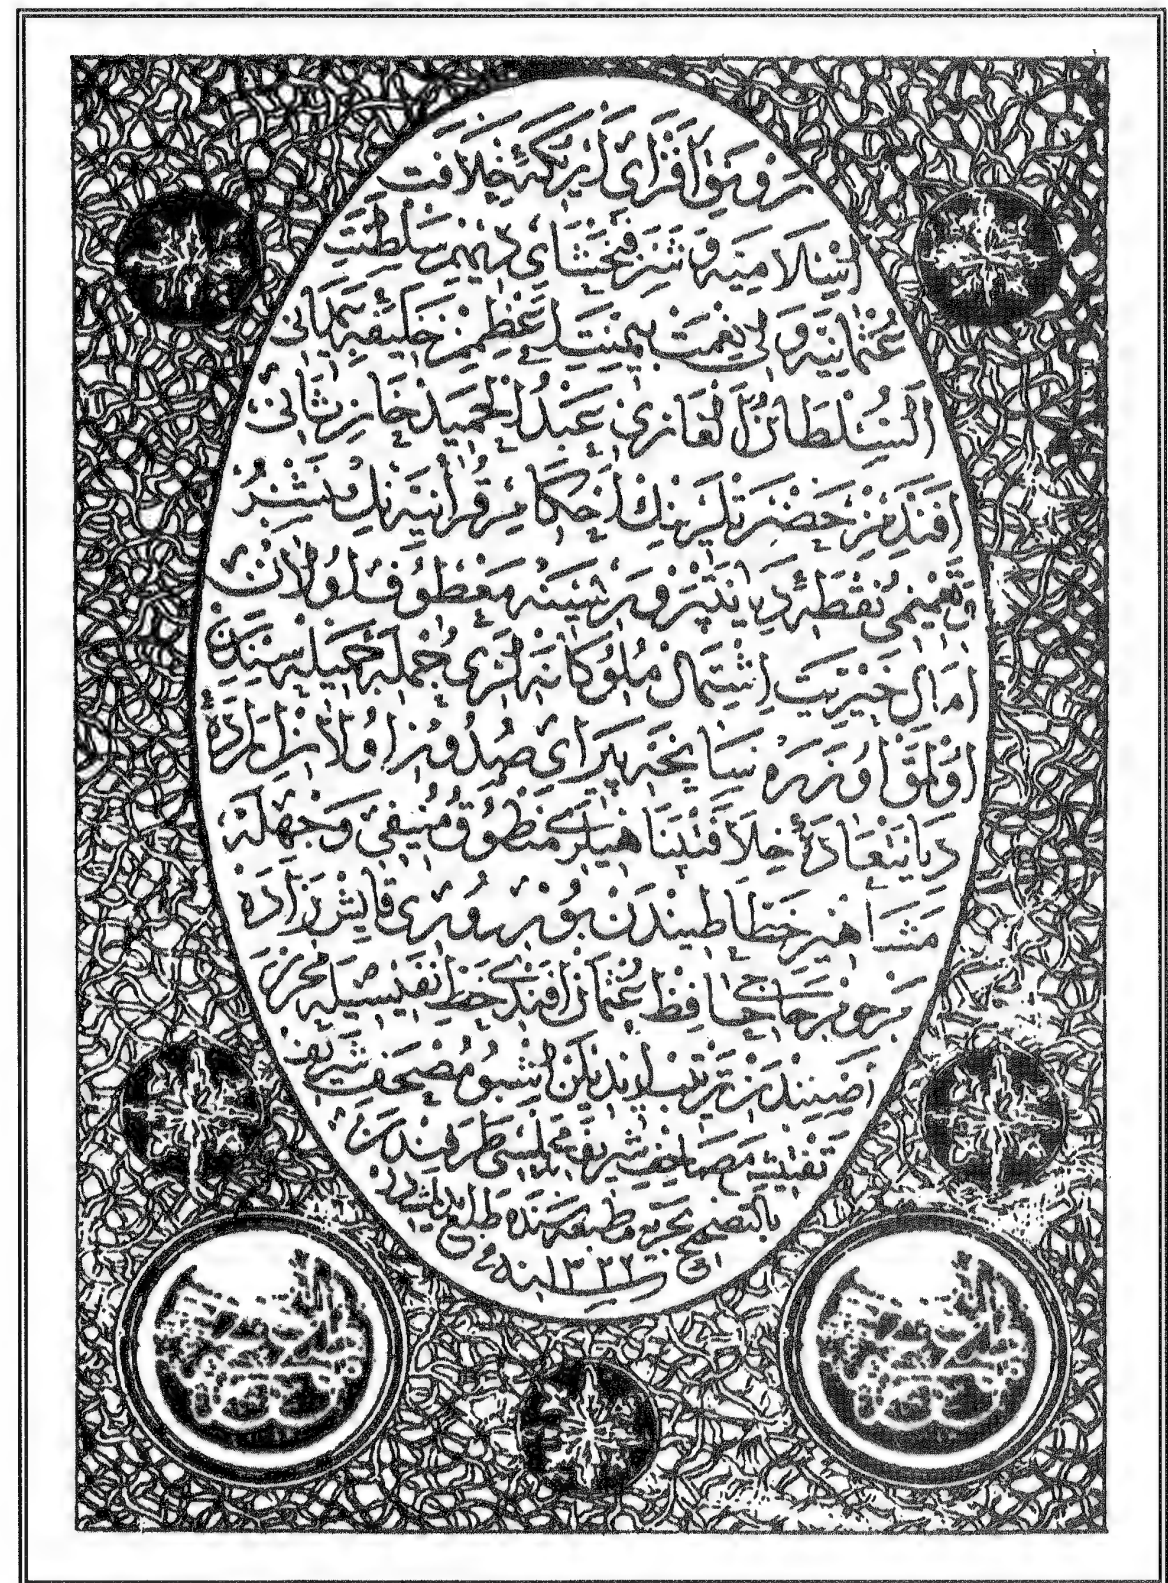 رونق افزای اریکهٔ خلافت
اسلامیه و شرفبخشای دیهیم سلطنت
عثمانیه ولی نعمت بیمنت اعظم خلیفه
السلطان الغازی عبد الحمید خان ثانی
افندمز حضرتلرینك احکام قرآنیه نك نشر
تعمیمی نقطهٔ دیانتپرورسینه معطوف اولان
امال خیریت اشتمال ملوکانه لری جملهٔ جمیله سندن
اولمق اوزره سایحه پیرای صدور اولان اراده
دیانتعادهٔ خلافتپناهیلری منطوق منیفی وجهله
مشاهیر خطاطیندن بوردوری قایش زاده
مرحوم حاجی حافظ عثمان افندی خط نفیسیله محرر
ترتیب ایدیلن اشبو مصحف شریف
تفتیش مصاحف شریفه مجلسی طرفندن
بالتصحیح بحریه مطبعه سنده طبع ایدلمشدر
فی سنه